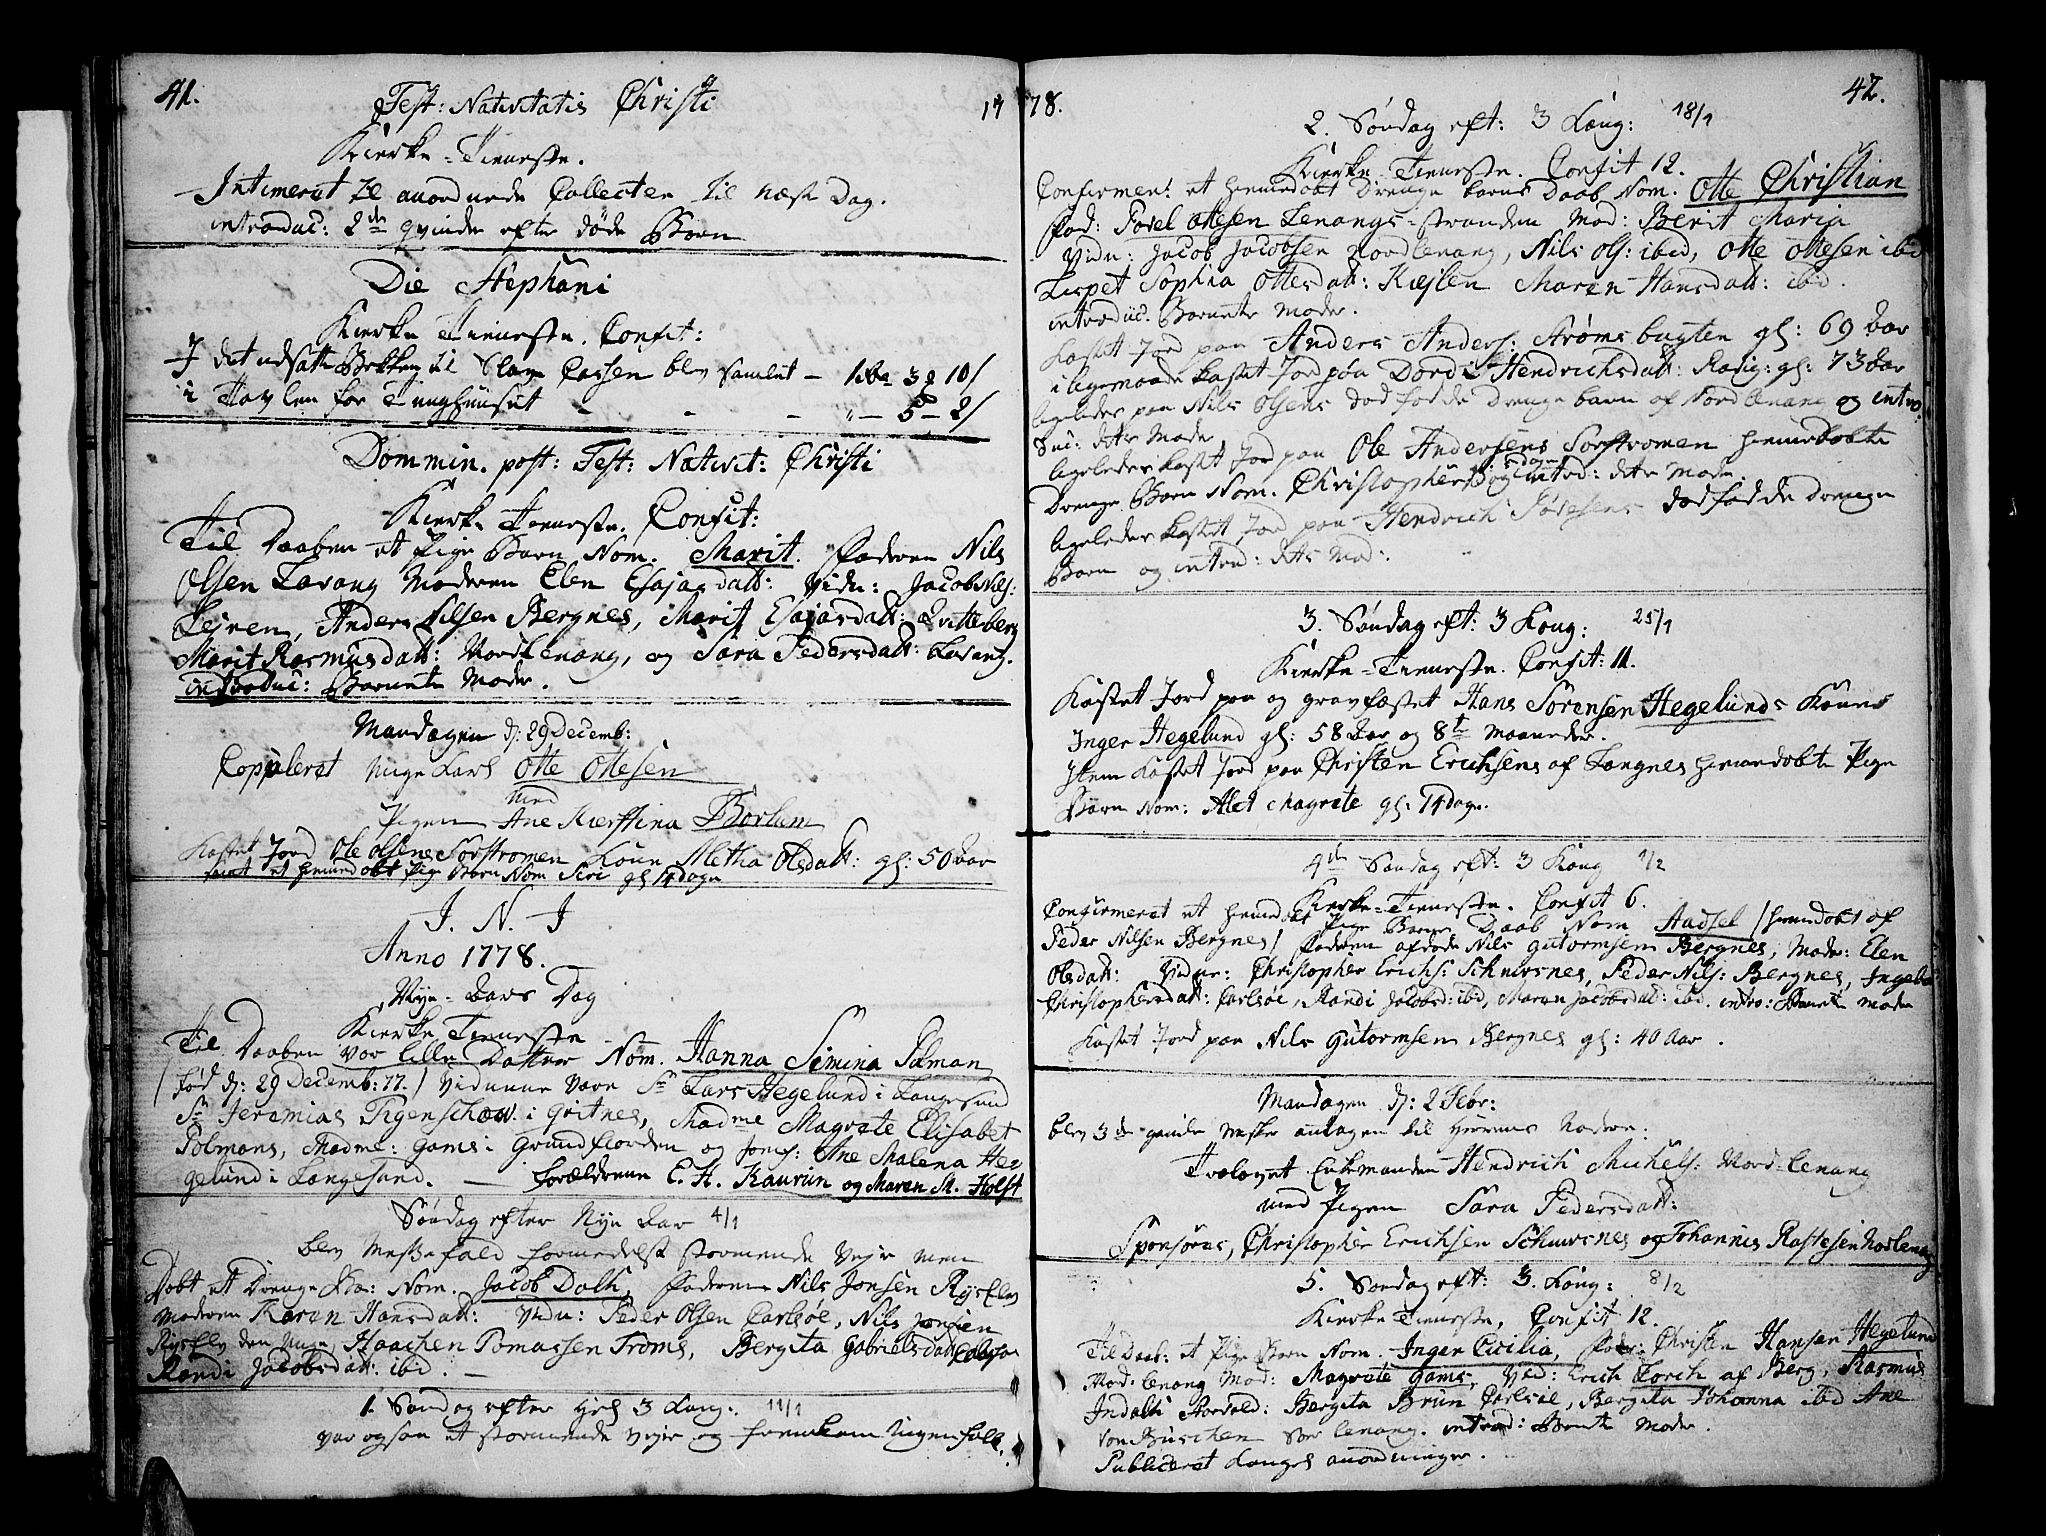 41.
Fest: Nativitatis Christi
17
Kirke-Tieneste.
Intimeret de anordnede Collecter til næste Dag.
introduc: 2de qvinder efter døde Børn
Die Stephani
Kirke Tieneste. Confit:
I det udsatte Bekken til Slags Cassen blev samlet — 1 Rdr 3 ₰ 10/
i Tavlen for Tugthuuset - - - " — 5 — 2/
Dommin. post: Fest: Nativit: Christi
Kirke Tieneste. Confit:
Til Daaben et Pige Barn Nom. Marit. Faderen Nils
Olsen Lavang Moderen Elen Esajasdatt: Vidn: Jacob Nils:
Lejren, Anders Nilsen Bergnes, Marit Esajasdatt: Qvitteberg
Marit Rasmusdatt: Nordlenang, og Sara Pedersdatt: Lavang.
introduc: Barnets Moder.
Mandagen d: 29 Decemb:
Copuleret unge Karl Otte Ottesen
med
Pigen Ane Kierstina Borlum
Kastet Jord Ole Olsens Sorstromen Kone Metha Olsdatt: gl: 50 Aar
samt et hiemedøbt Pige Barn Nom Siri gl 14 dage
I. N. J
Anno 1778.
Nye-Aars Dag
Kirke Tieneste
Til Daaben vor lille Datter Nom. Hanna Simina Polman
/ fød d: 29 Decemb: 77. / Vidnene vare Sr Lars Hegelund i Langesund
Sr Jeremias Figenschow i Goitnes, Madme Magrete Elisabet
Polmans, Madme: Gams i Grundfiorden og Jomf: Ane Malena He
gelund i Langesund. — Forældrene E. H. Kaurin og Maren M. Holst
Søndag efter Nye Aar 4/1
blev Messefald formedelst stormende Vejr men
Døbt et Drenge Ba: Nom. Jacob Dolk, Faderen Nils Jonsen Ryselv
Moderen Karen Hansdatt: Vidn: Peder Olsen Carlsøe, Nils Jonsen
Ryselv den unge, Haachen Tomassen Troms, Bergita Gabrielsdatt Carlsøe
Randi Jacobsdatt: ibid. —
1. Søndag efter Hel 3 Kong: 11/1
var ogsaa et stormende Vejr og fremkom ingen folk.
78.
42.
2. Søndag eft: 3 Kong: 18/1
Kirke-Tieneste. Confit 12.
Confirmert et hiemedøbt Drenge barns Daab Nom. Otte Christian
Fad: Povel Ottesen Lenangs-stranden Mod: Berit Maria
Vidn: Jacob Jacobsen Nordlenang, Nils Ols: ibid, Otte Ottesen ibid
Lispet Sophia Ottesdatt: Kieslen Maren Hansdatt: ibid.
introduc. Barnets Moder.
Kastet Jord paa Anders Anders: Strømsbugten gl: 69 Aar
i ligemaade Kastet Jord paa Dordi Hendrichsdatt: gl: 73 Aar
ligeledes paa Nils Olsens dødfødde Drenge barn af Nordlenang og intro
duc: dets Moder
ligeledes Kastet Jord paa Ole Andersens Sorstromen hiemedøbte
Drenge Barn Nom. Christopher og introd: dets Moder
ligeledes Kastet Jord paa Hendrich dødfødde Drenge
Barn og introd: dets Mod:
3. Søndag eft: 3 Kong: 25/1
Kirke-Tieneste. Confit: 11.
Kastet Jord paa og gravfæstet Hans Sørensen Hegelunds Kone
Inger Hegelund gl: 58 Aar og 8te Maaneder.
Item Kastet Jord paa Christen Erichsens af Langnes hiemedøbte Pige
Barn Nom: Alet Magrete gl: 14 dage.
4de Søndag eft: 3 Kong 1/2
Kirke-Tieneste. Confit 6.
Confirmeret et hiemedøbt Pige Barns Daab Nom Audsel / hiemdøbt af
Peder Nilsen Bergnes / Faderen afdøde Nils Gutormsen Bergnes, Moder: Elen
Olsdatt: Vidner: Christopher Erichs: Schurvsnes, Peder Nils: Bergnes, Ingeb:
Christophersdatt: Carlsøe, Randi Jacobsd: ibid, Maren Jacobsdat: ibid. intro: Barnets Moder
Kastet Jord paa Nils Gutormsen Bergnes gl: 40 Aar.
Mandagen d: 2 Febr:
blev 3de gamle Mester antagen til Herrens Nadvere:
Trolovet Enkemanden Hendrich Michels: Nord-Lenang
med Pigen Sara Pedersdatt:
Sponsores, Christopher Erichsen Schurvsnes og Johannis Rastesen Nordlenang
5. Søndag eft: 3. Kong: 8/2
Kirke Tieneste, Confit 12.
Til Daab: et Pige Barn Nom. Inger Cicilia, Fader: Christen Hansen Hegelund
Nord-Lenang Mod: Magrete Gams, Vid: Erich Lorch af Berg, Rasmus
Indahl Skorvold: Bergita Brun Carlsøe, Bergita Johanna ibid Ane
von Buschen Sør lenang. introd: Barnets Moder.
Publiceret Konges anordninger.